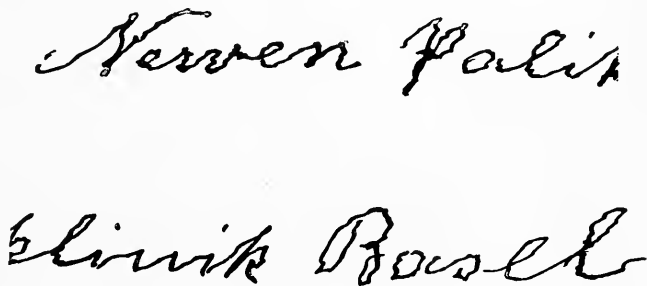 Nerven Polik
klinik Basel